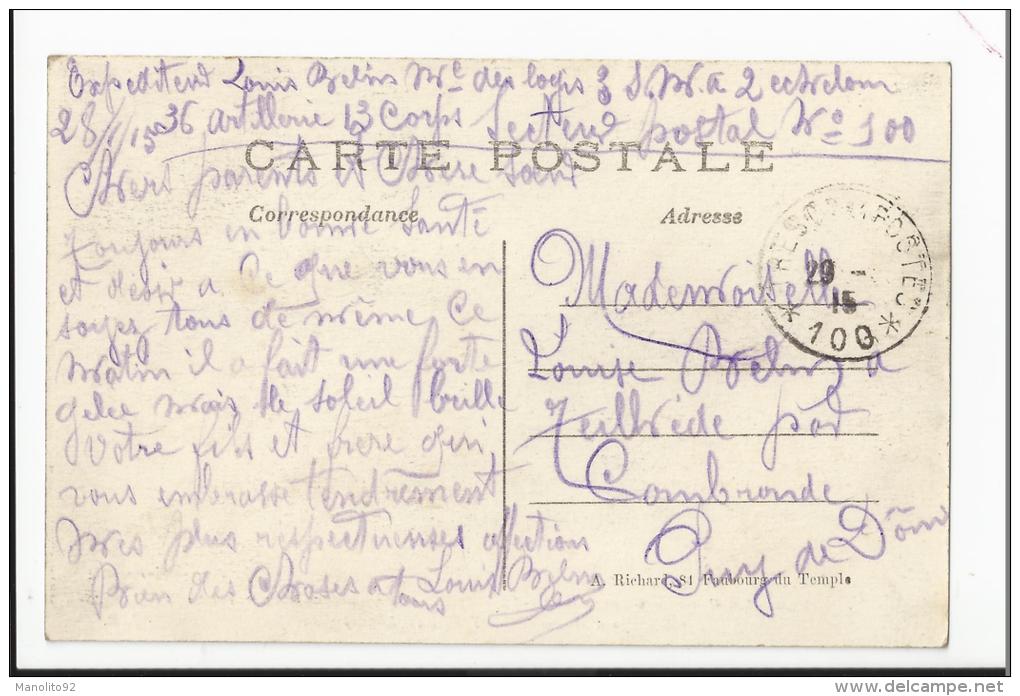 Expediteur Louis Belin Mᶜ des logis 3 S.M.a 2 echelon
28/1/15 36 artillerie 13 Corps Secteur postal Nº 100
CARTE POSTALE
Chers parents et Chere Sœur
Correspondance
Adresse
toujours en bonne Santé
et desir a Ce que vous en
soyez tous de même Ce
Matin il a fait une forte
gelee mais le soleil brille
Votre fils et frere qui
vous embrasse tendrement
Mes plus respectueuses affections
Bien des Choses a tous Louis Belin
Mademoiselle
Louise Belin a
par
Combronde
Puy de Dôme
TRESOR ET POSTES
29 -
15
* 100 *
A. Richard, 84 Faubourg du Temple
Manolito92
delcampe.net